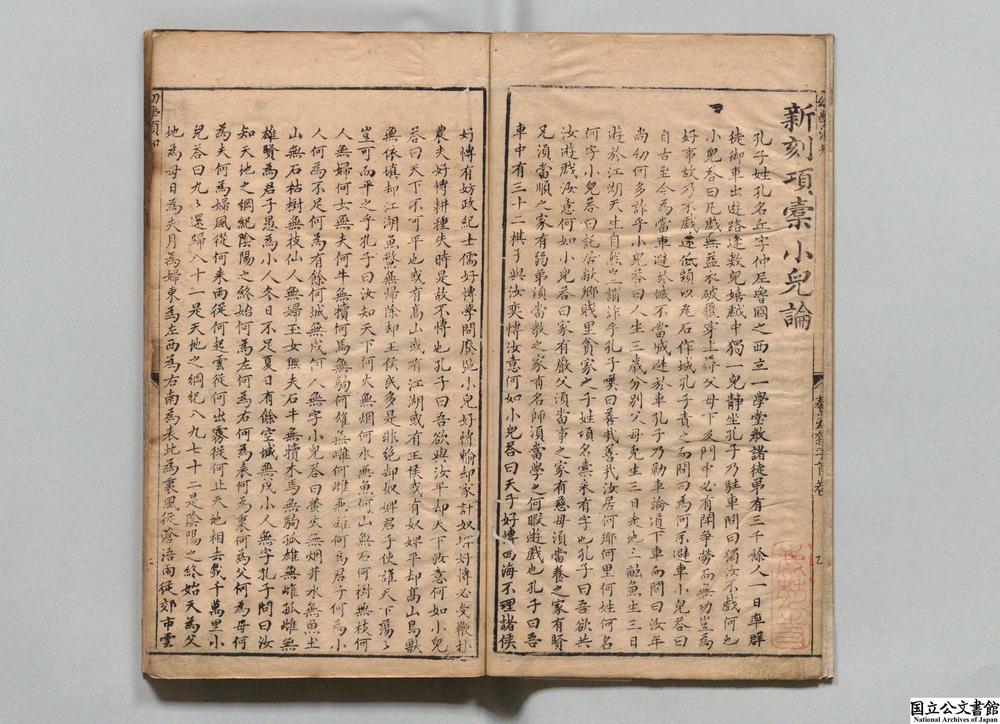 新刻項橐小兒論
孔子姓孔名丘字仲尼魯國之西立一學堂教諸徒弟有三千餘人一日率群
徒御車出遊路逢数兒嬉戲中獨一兒靜坐孔子乃駐車問曰獨汝不戲何也
小兒答曰凡戲無益衣破難穿上辱父母下及門中必有鬪爭勞而無功豈為
好事故乃不戲遂低頭以瓦石作城孔子責之而問曰為何不避車小兒答曰
自古至今為當車避於城不當城避於車孔子乃勒車論道下車而問曰汝年
尚幼何多詐乎小兒答曰人生三歲分別父母兔生三日走地三畝魚生三日
遊於江湖天生自然豈謂詐乎孔子嘆曰善哉善哉汝居何鄉何里何姓何名
何字小兒答曰託居敝鄉賤里貧家之子姓項名橐未有字也孔子曰吾欲共
汝遊戲汝意何如小兒答曰家有嚴父須當事之家有慈母須當養之家有賢
兄須當順之家有弱弟須當教之家有名師須當學之何暇遊戲也孔子曰吾
車中有三十二棋子與汝奕博汝意何如小兒答曰天子好博四海不理諸侯
好博有妨政紀士儒好博學問廢弛小兒好博輸却家計奴婢好博必受鞭扑
農夫好博耕種失時是故不博也孔子曰吾欲與汝平却天下汝意何如小兒
答曰天下不可平也或有高山或有江湖或有王侯或有奴婢平却高山鳥獸
無依填却江湖魚鱉無歸除却王侯民多是非絕却奴婢君子使誰天下蕩〻
豈可而平之乎孔子曰汝知天下何火無烟何水無魚何山無石何樹無枝何
人無婦何女無夫何牛無犢何馬無駒何雄無雌何雌無雄何為君子何為小
人何為不足何為有餘何城無戍何人無字小兒答曰螢火無烟井水無魚土
山無石枯樹無枝仙人無婦玉女無夫石牛無犢木馬無駒孤雄無雌孤雌無
雄賢為君子愚為小人冬日不足夏日有餘空城無戍小人無字孔子問曰汝
知天地之綱紀陰陽之終始何為左何為右何為表何為裏何為父何為母何
為夫何為婦風從何來雨從何起雲從何出霧從何止天地相去幾千萬里小
兒答曰九〻還歸八十一是天地之綱紀八九七十二是陰陽之終始天為父
地為母日為夫月為婦東為左西為右南為表北為裏風從蒼梧雨從郊市雲
国立公文書館
National Archives of Japan